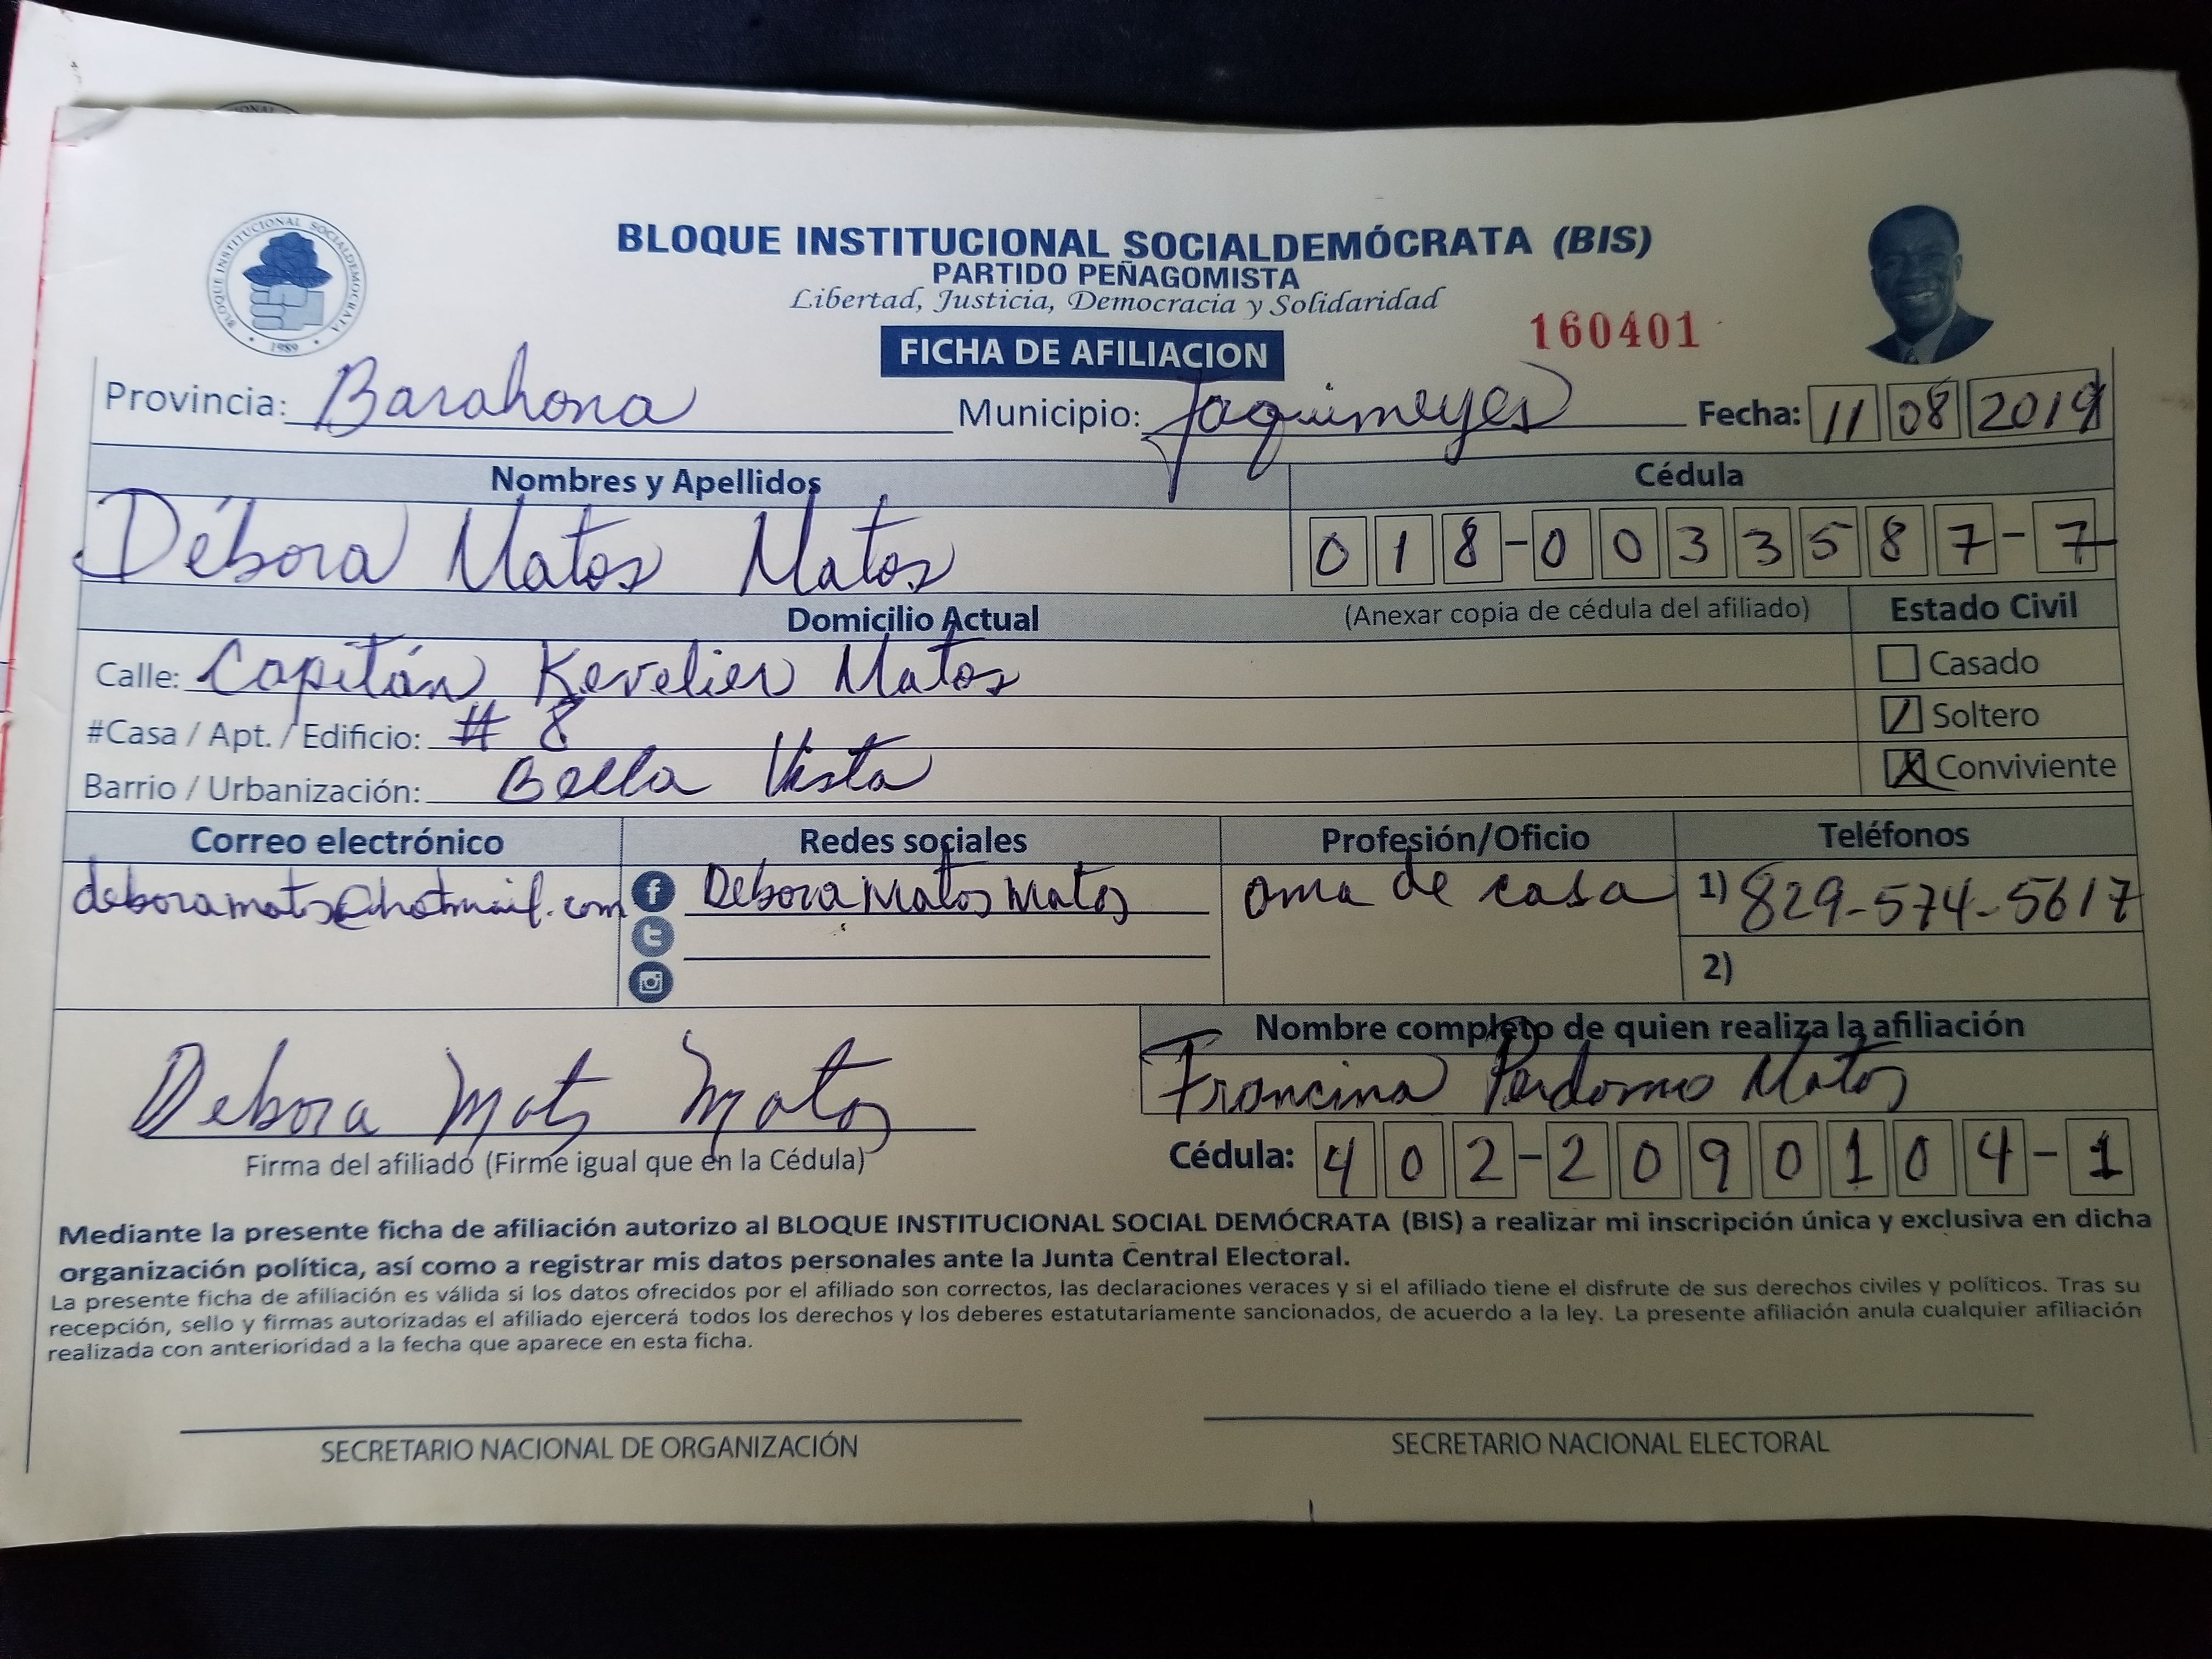 BLOQUE INSTITUCIONAL SOCIALDEMÓCRATA (BIS)
PARTIDO PEÑAGOMISTA
Libertad, Justicia, Democracia y Solidaridad
BLOQUE INSTITUCIONAL SOCIALDEMOCRATA
1989
160401
FICHA DE AFILIACION
Provincia: Barahona Municipio: Jaquimeyes Fecha: 11 08 2019
Nombres y Apellidos Cédula
Débora Matos Matos 018-0033587-7
Domicilio Actual (Anexar copia de cédula del afiliado) Estado Civil
Calle: Capitán Kevelier Matos Casado
#Casa / Apt. / Edificio: # 8 Soltero
Barrio / Urbanización: Bella Vista X Conviviente
Correo electrónico Redes sociales Profesión/Oficio Teléfonos
deboramatos@hotmail.com Debora Matos Matos ama de casa 1) 829-574-5617
2)
Nombre completo de quien realiza la afiliación
Debora Matos Matos Francina Perdomo Matos
Firma del afiliado (Firme igual que en la Cédula) Cédula: 402-2090104-1
Mediante la presente ficha de afiliación autorizo al BLOQUE INSTITUCIONAL SOCIAL DEMÓCRATA (BIS) a realizar mi inscripción única y exclusiva en dicha
organización política, así como a registrar mis datos personales ante la Junta Central Electoral.
La presente ficha de afiliación es válida si los datos ofrecidos por el afiliado son correctos, las declaraciones veraces y si el afiliado tiene el disfrute de sus derechos civiles y políticos. Tras su
recepción, sello y firmas autorizadas el afiliado ejercerá todos los derechos y los deberes estatutariamente sancionados, de acuerdo a la ley. La presente afiliación anula cualquier afiliación
realizada con anterioridad a la fecha que aparece en esta ficha.
SECRETARIO NACIONAL DE ORGANIZACIÓN SECRETARIO NACIONAL ELECTORAL